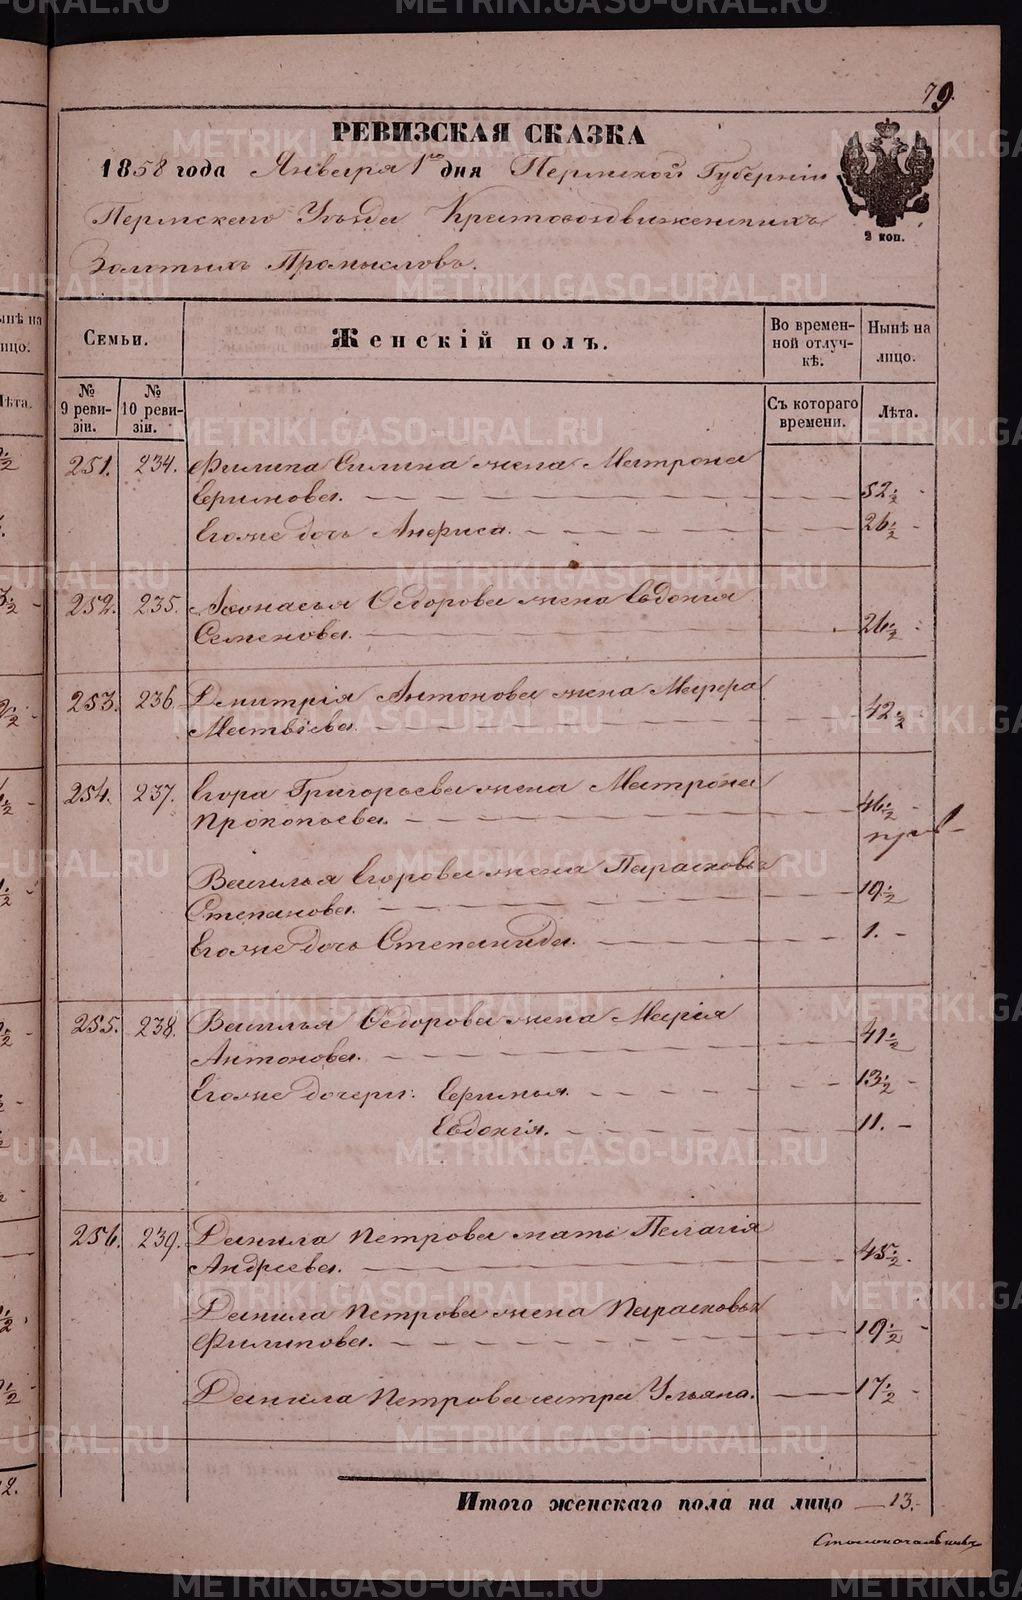 79.
РЕВИЗСКАЯ СКАЗКА
1858 года Января 1го дня Пермской Губерніи
Пермскаго Уѣзда Крестовоздвиженскихъ
Золотыхъ Промысловъ.
2 коп.
Семьи. Женскій полъ. Во временной отлучкѣ. Нынѣ на лицо.
№ 9 ревизіи. № 10 ревизіи. Съ котораго времени. Лѣта.
251. 234. Филипа Силина жена Матрона
Ефимова. 52 1/2
Егоже дочь Анфиса. 26 1/2
252. 235. Афонасья Федорова жена Евдокія
Семенова. 26 1/2
253. 236. Дмитрія Антонова жена Марфа
Матвѣева. 42 1/2
254. 237. Егора Григорьева жена Матрона
Прокопьева. 46 1/2
Василья Егорова жена Парасковья
Степанова. 19 1/2
Егоже дочь Степанида. 1.
255. 238. Василья Федорова жена Марія
Антонова. 41 1/2
Егоже дочери: Ефимья. 13 1/2
Евдокія. 11.
256. 239. Данила Петрова мать Пелагія
Андреева. 45 1/2
Данила Петрова жена Парасковья
Филипова. 19 1/2
Данила Петрова сестра Ульяна. 17 1/2
Итого женскаго пола на лицо 13.
Столоначальникъ
METRIKI.GASO-URAL.RU